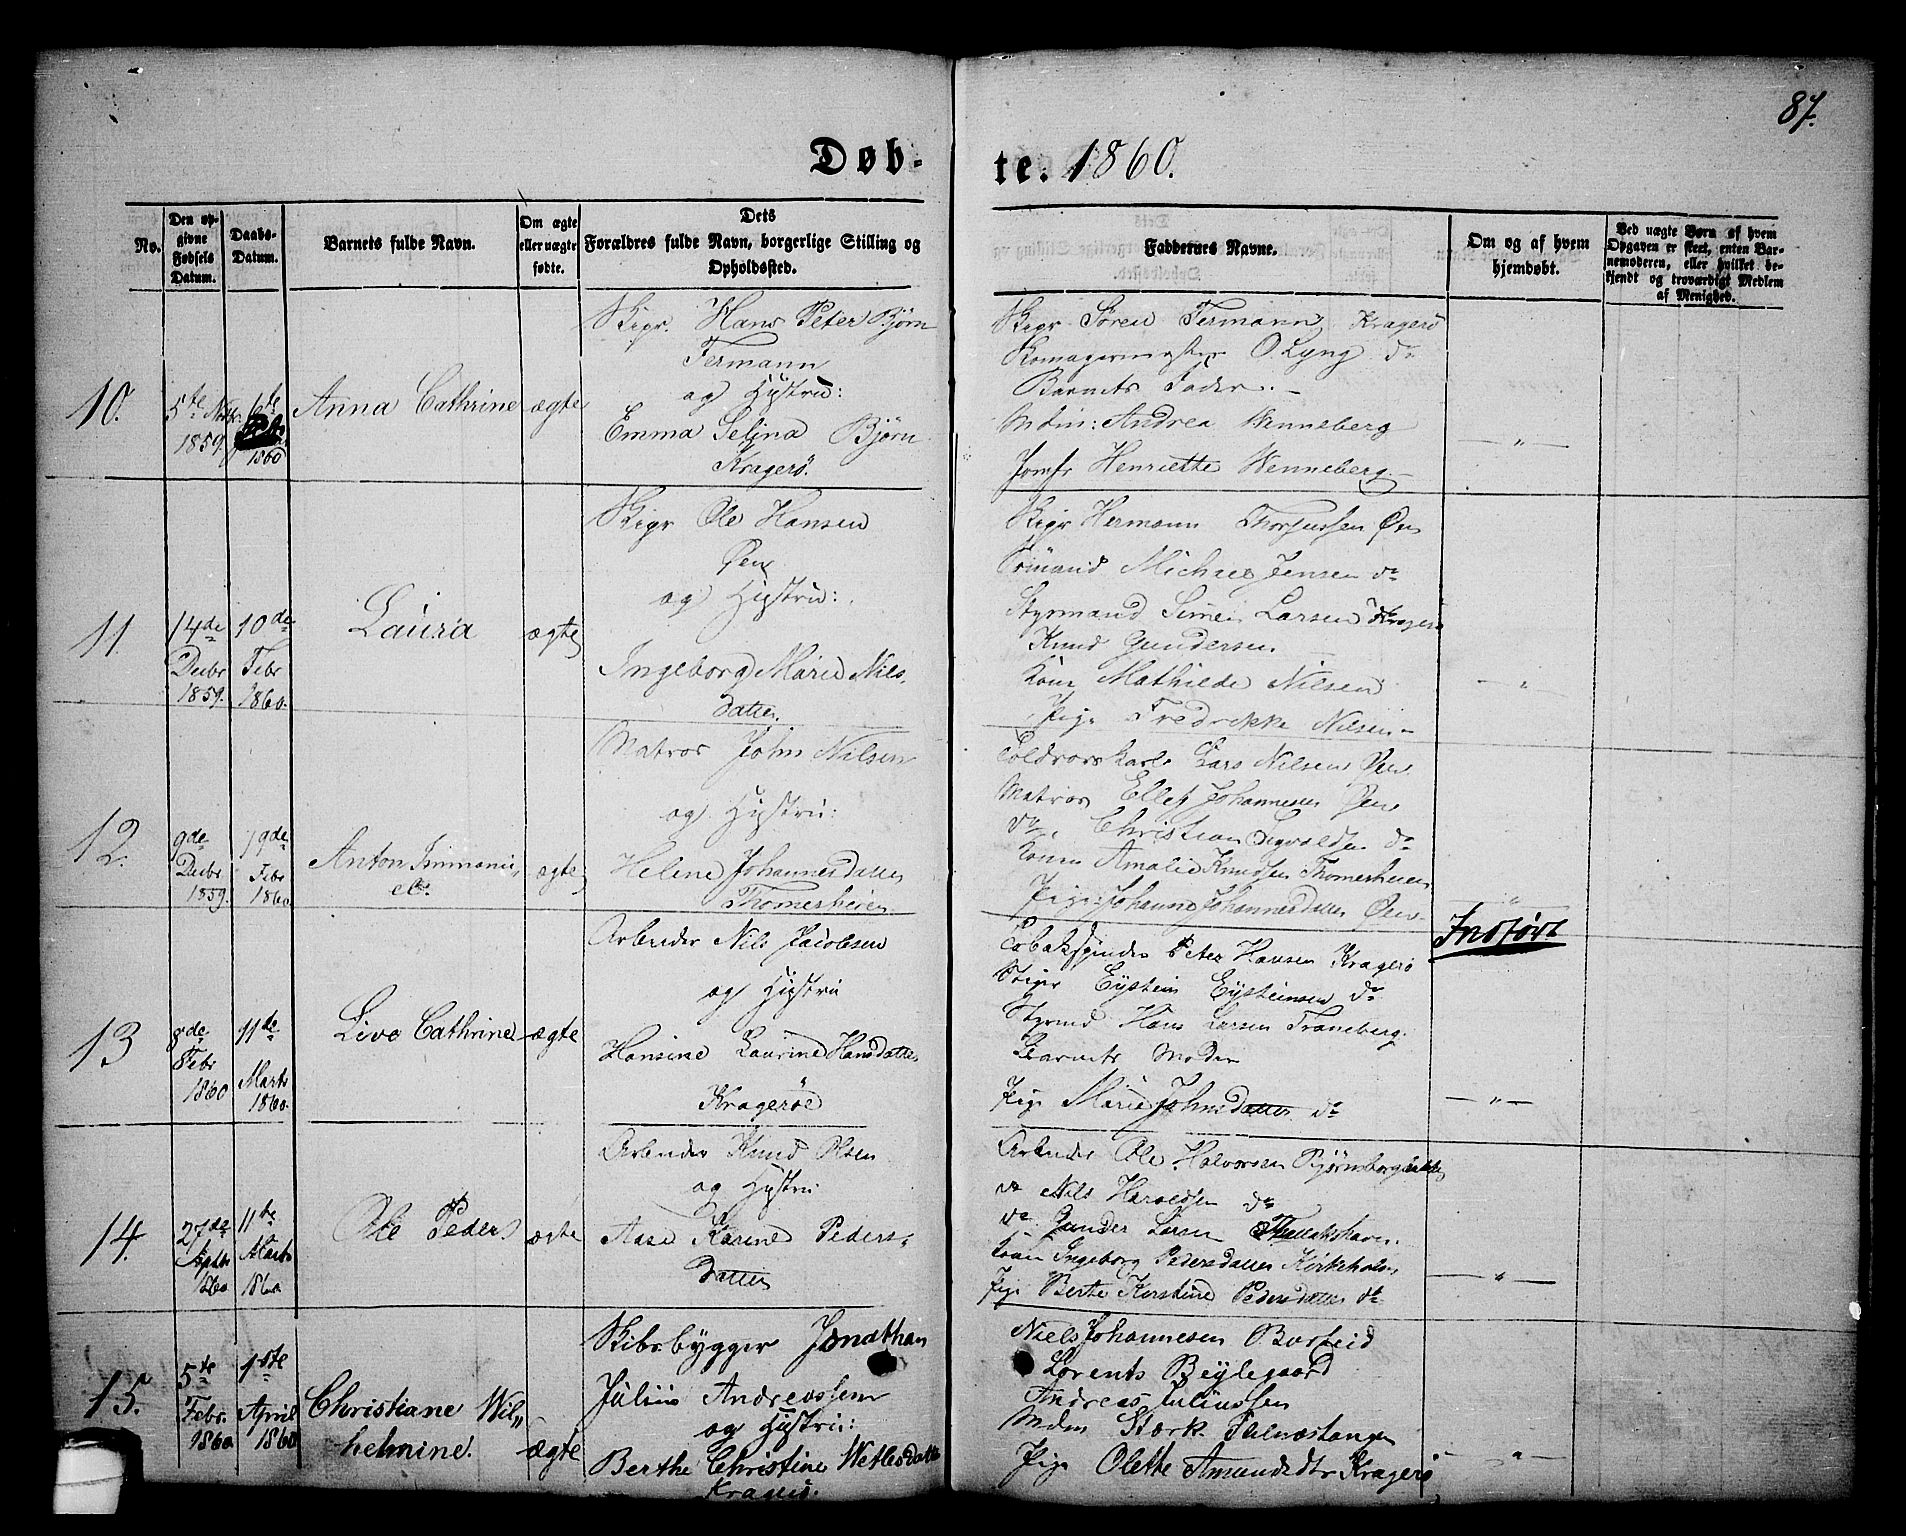 87.
Døb-
te. 1860.
No.
Den op-
givne
Fødsels
Datum.
Daabs-
Datum.
Barnets fulde Navn.
Om ægte
eller uægte
født.
Dets
Forældres fulde Navn, borgerlige Stilling og
Opholdssted.
Faddernes Navne.
Om og af hvem
hjemdøbt.
Ved uægte Børn af hvem
Opgaven er skeet, enten Bar-
nemoderen, eller hvilket be-
kjendt og troværdigt Medlem
af Menighed.
10.
5te
1859.
6te
1860
Anna Cathrine
ægte
Skipr. Hans Peter Bjørn
Fermann
og Hustru:
Emma Selina Bjørn
Kragerö.
Skipr Sören Fermann, Kragerö
O. Lyng do
Barnets Fader. -
Mdm: Andrea Wenneberg
Jomfr Henriette Wenneberg -
— " —
11.
14de
Decbr
1859.
10de
Febr
1860.
Laura
ægte
Skipr Ole Hansen
Øen
og Hustru:
Ingeborg Marie Nils
Datter.
Skipr Hermann Thorjussen Øen
Michael Jensen do
Styrmand Larsen Kragerö
Knud Gundersen
Kone Mathilde Nilsen
Pige Fredrikke Nilsen -
— " —
12.
9de
Decbr
1859.
19de
Febr
1860.
Anton Immanu,
el.
ægte
Matros John Nilsen
og Hustru:
Helene Johannesdatter
Thomesheien
Lars Nilsen Øen
Matros Ellef Johannesen Øen
do. Christian do
Konen Amalie Knudsen Thomesheien
Pige Johanne Johannesdatter Øen
"
Indført
13
8de
Febr
1860
11te
Marts
1860.
Live Cathrine
ægte
Arbeider Nils Jacobsen
og Hustru
Hansine Laurine Hansdatter
Kragerøe
Tobakspinder Peter Hansen Kragerö
Eystein Eysteinsen do
Styrmd Hans Larsen Traneberg.
Barnets Moder
Pige Marie Johnsdatter do
— " —
14.
27de
1860
11te
Marts
1860
Ole Peder
ægte
Arbeider Knud Olsen
og Hustru
Aase Karine Peders,
Datter
Arbeider Ole Halvorsen
do Nils do
do Gunder Larsen
Kone Ingeborg Pedersdatter Kirkeholm
Pige Berthe Kirstine Pedersdatter do
— " —
15.
5te
Febr.
1860.
1ste
April
1860
Christiane Wil,,
helmine.
ægte
Skibsbygger Jonathan
Julius Andreassen
og Hustru:
Berthe Christine Wetlesdatter
Kragerö.
Niels Johannesen
Lorents Beylegaard
Andreas Juliussen
Mdm Stærk
Pige Olette Amundsdtr Kragerö
"